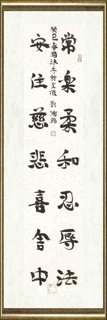 常樂柔和忍辱法
安住慈悲喜舍中